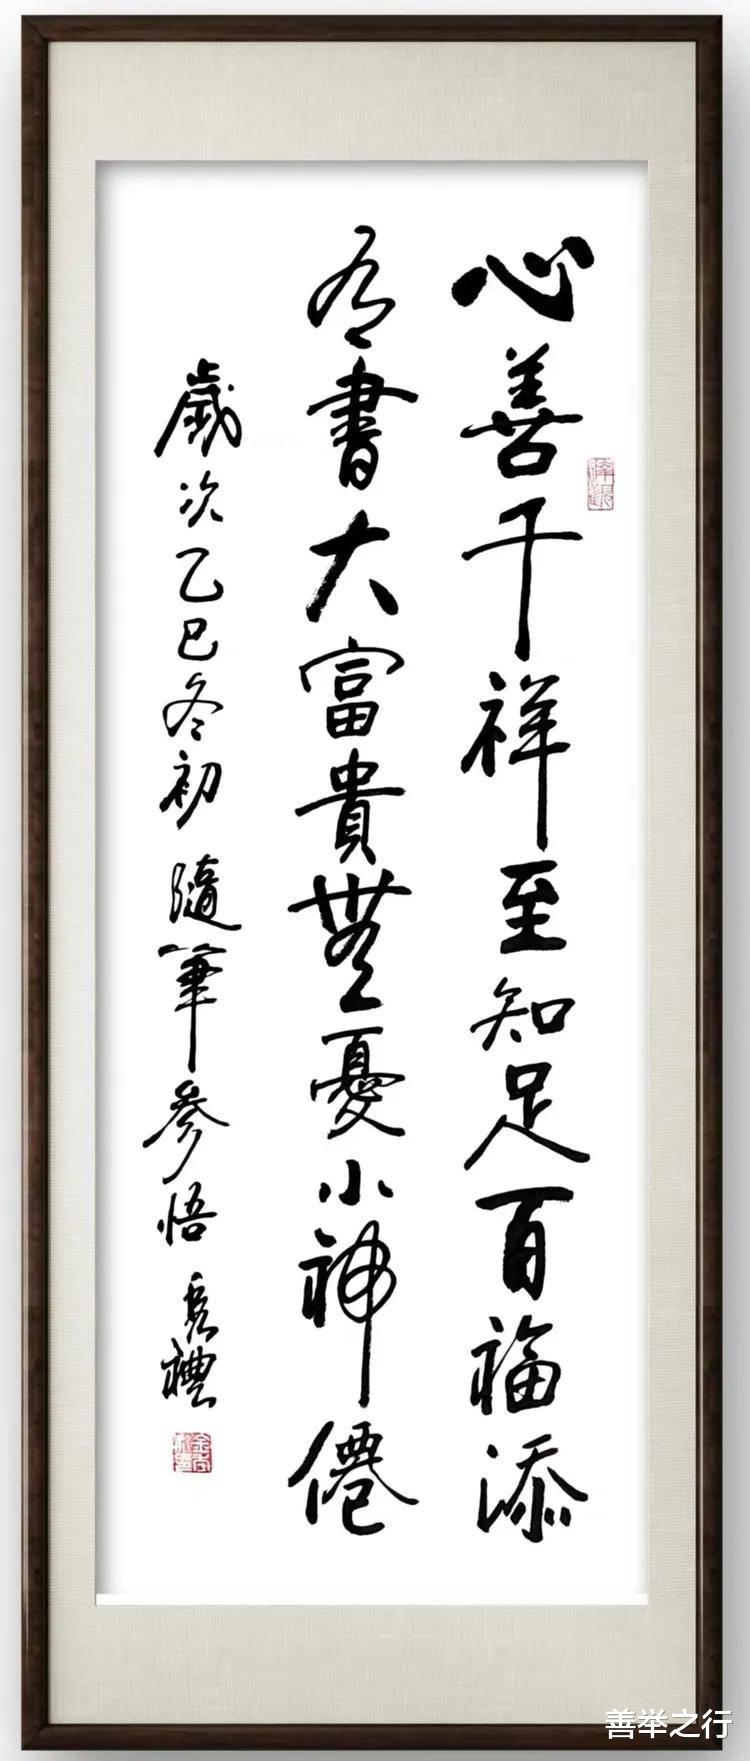 心善千祥至知足百福添
有書大富貴無憂小神僊
歲次乙巳冬初隨筆參悟
善举之行